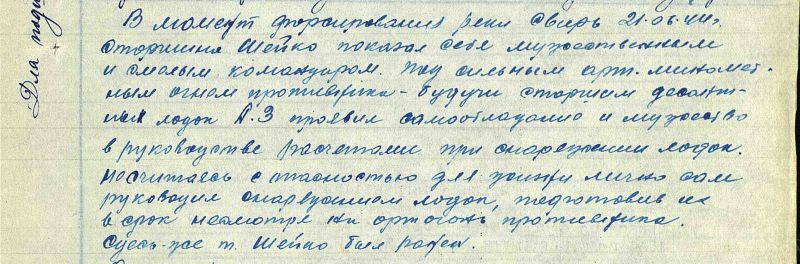 В момент форсирования реки Свирь 21.06.44г.
старшина Шейко показал себя мужественным
и смелым командиром. Под сильным арт. миномет-
ным огнем противника – будучи старшим десант-
ных лодок А.3 проявил самообладание и мужество
в руководстве расчетами при снаряжении лодок.
Несчитаясь с опасностью для жизни лично сам
руководил снаряжением лодок, подготовив их
в срок несмотря на артогонь противника.
Здесь-же т. Шейко был ранен.
Для